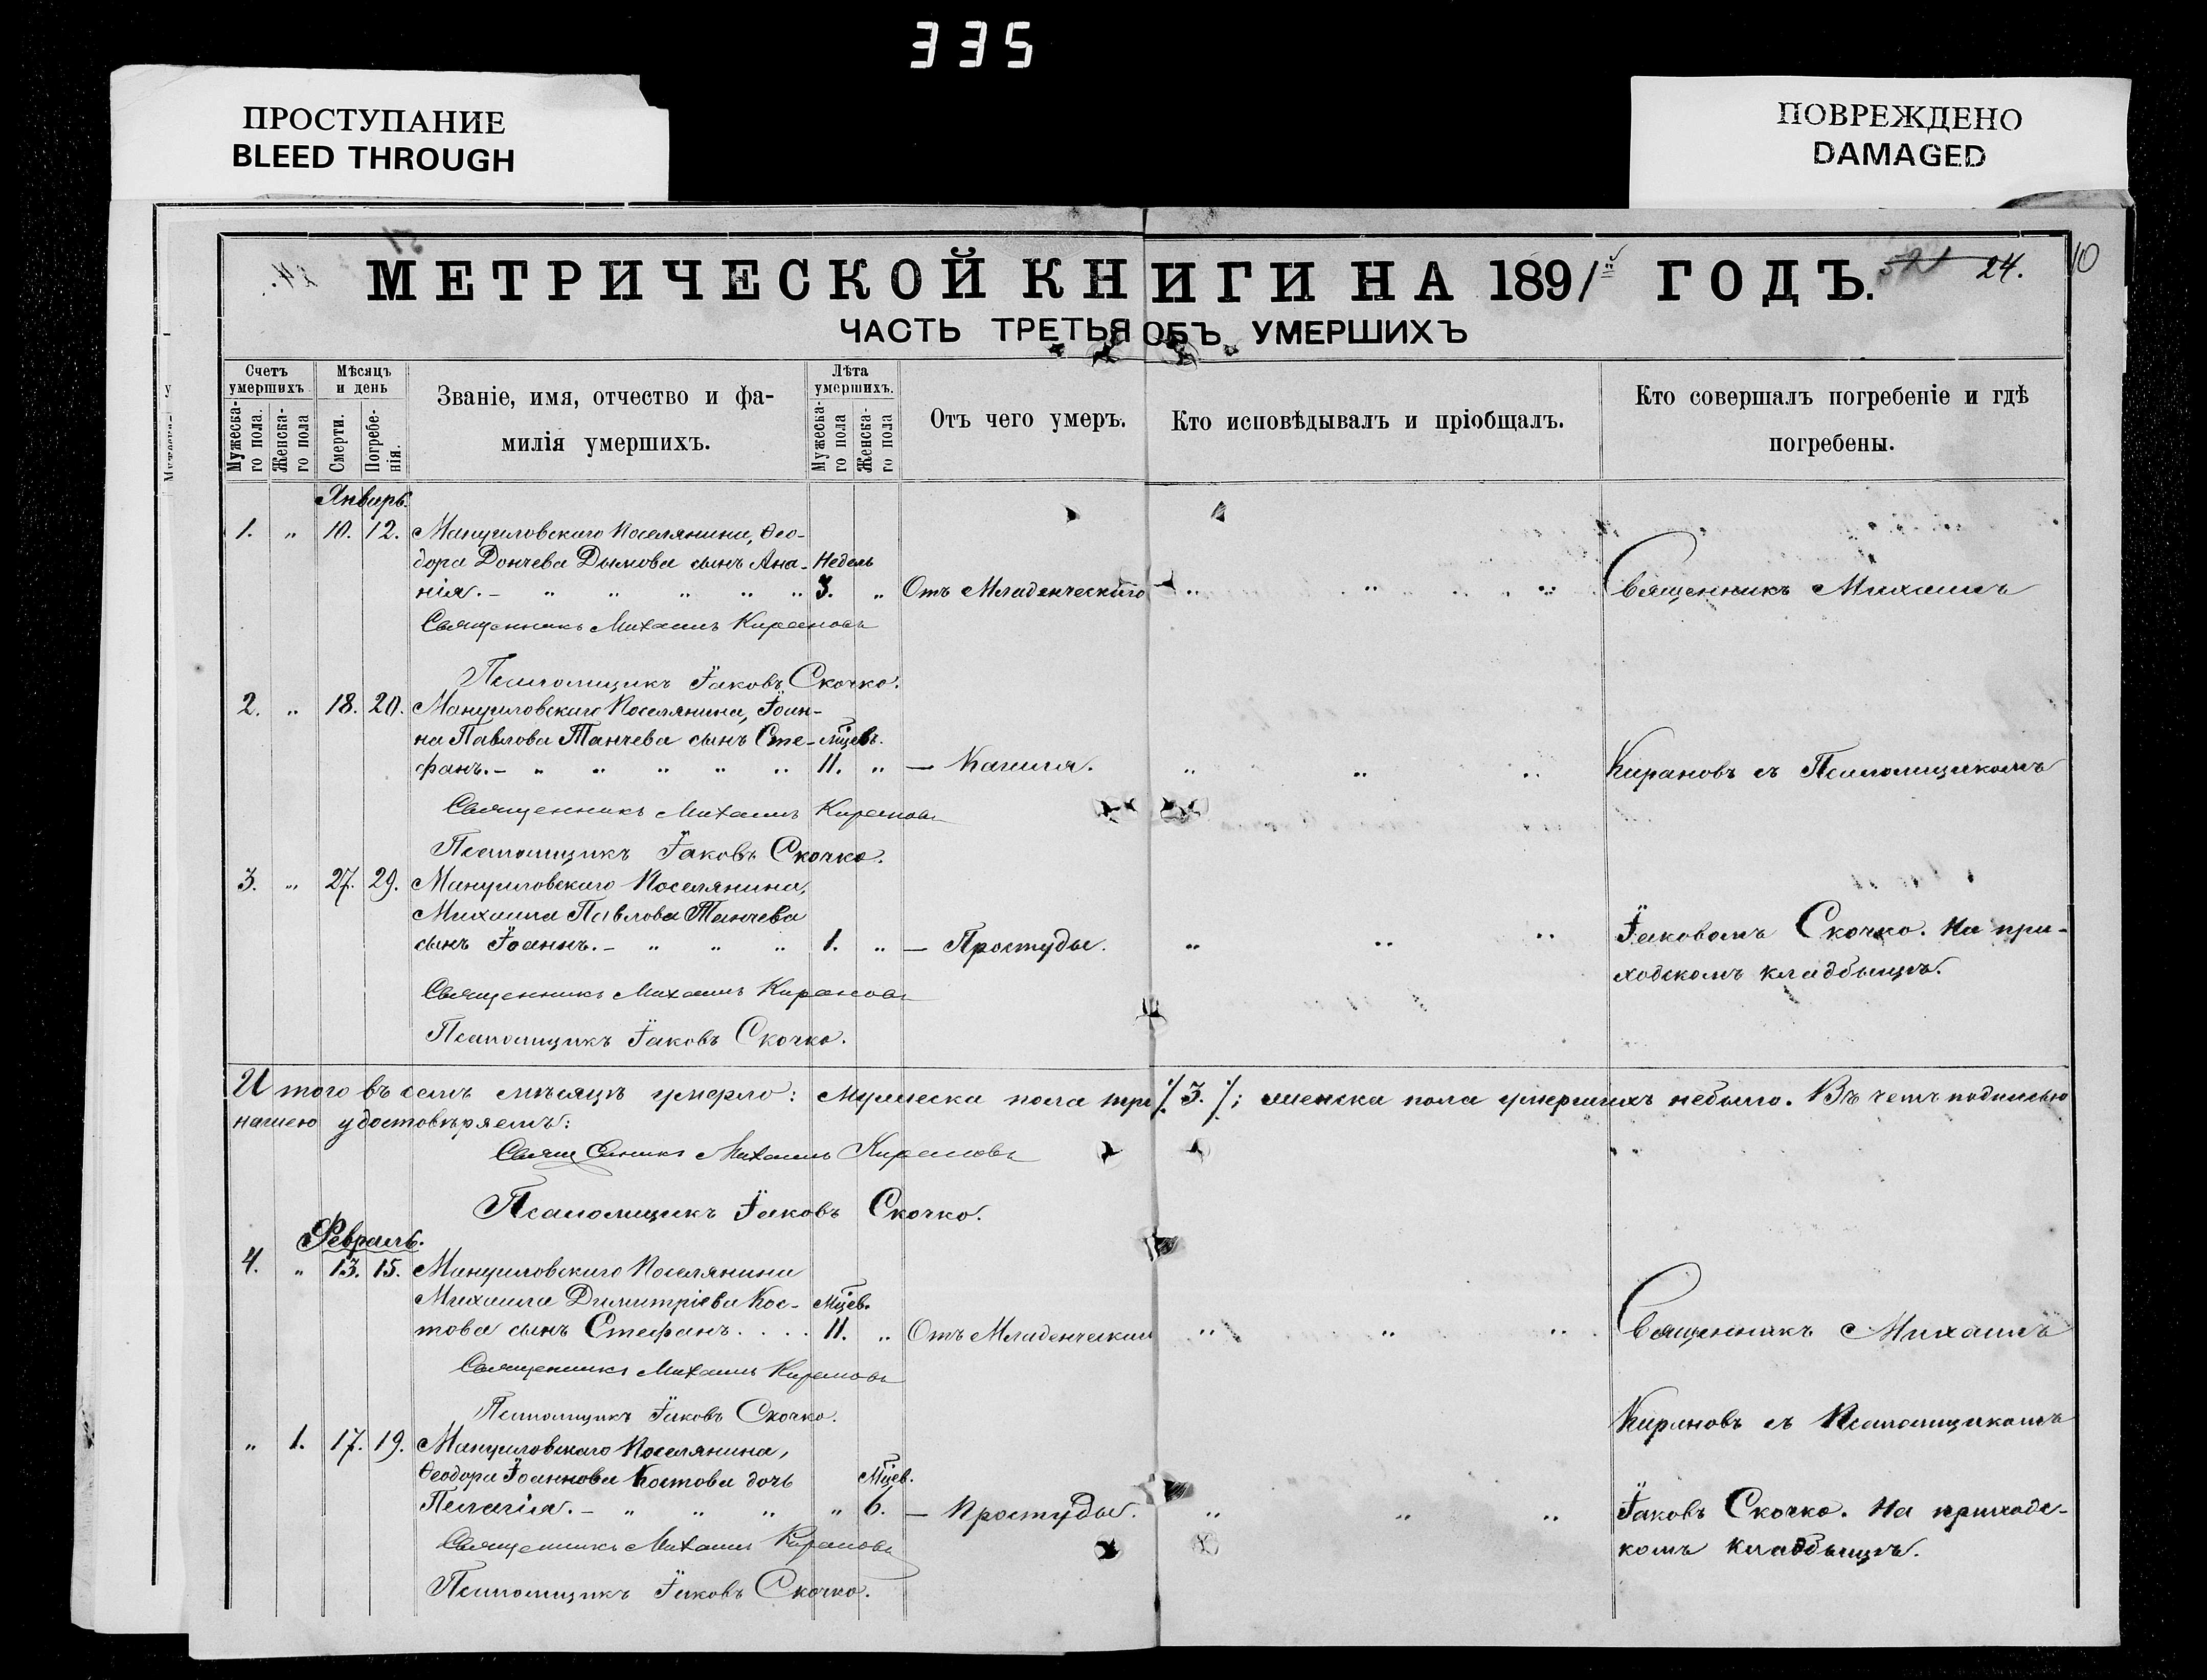 335
ПРОСТУПАНИЕ
BLEED THROUGH
ПОВРЕЖДЕНО
DAMAGED
МЕТРИЧЕСКОЙ КНИГИ НА 1891й ГОДЪ. 24. 10
ЧАСТЬ ТРЕТЬЯ ОБЪ УМЕРШИХЪ
Счетъ умершихъ
Мужеска-го пола.
Женска-го пола
Мѣсяцъ и день
Смерти.
Погребе-нія.
Званіе, имя, отчество и фа-
милія умершихъ.
Лѣта умершихъ.
Мужеска-го пола
Женска-го пола
Отъ чего умеръ.
Кто исповѣдывалъ и пріобщалъ.
Кто совершалъ погребеніе и гдѣ
погребены.
Январь.
1. " 10. 12. Мануиловскаго Поселянина, Ѳео-
дора Дончева Дымова сынъ Ана- Недель
нія. - " " " " " 3. " Отъ Младенческаго " " " Священникъ Михаилъ
Священникъ Михаилъ Кирановъ
Псаломщикъ Іаковъ Скочко.
2. " 18. 20. Мануиловскаго Поселянина, Іоан-
на Павлова Танчева сынъ Сте- мцевъ.
фанъ. - " " " " " 11. " — Кашля. " " " Кирановъ съ Псаломщикомъ
Священникъ Михаилъ Кирановъ
Псаломщикъ Іаковъ Скочко.
3. " 27. 29. Мануиловскаго Поселянина,
Михаила Павлова Танчева
сынъ Іоаннъ. - " " " 1. " — Простуды. " " " Іаковомъ Скочко. На при-
ходскомъ кладбищѣ.
Священникъ Михаилъ Кирановъ
Псаломщикъ Іаковъ Скочко.
Итого въ семъ мѣсяцѣ умерло: мужеска пола три ./. 3. ./.; женска пола умершихъ небыло. Въ чемъ подписью
нашею удостовѣряемъ:
Священникъ Михаилъ Кирановъ
Псаломщикъ Іаковъ Скочко.
Февраль.
4. " 13. 15. Мануиловскаго Поселянина
Михаила Димитріева Кос- Мцев.
това сынъ Стефанъ. . . . 11. " Отъ Младенческаго " " " Священникъ Михаилъ
Священникъ Михаилъ Кирановъ
Псаломщикъ Іаковъ Скочко.
Кирановъ съ Псаломщикомъ
" 1. 17. 19. Мануиловскаго Поселянина,
Ѳеодора Іоаннова Костова дочь Мцев.
Пелагія. - " " " " 6. — Простуды. " " " Іаковъ Скочко. На приходс-
комъ кладбищѣ.
Священникъ Михаилъ Кирановъ
Псаломщикъ Іаковъ Скочко.